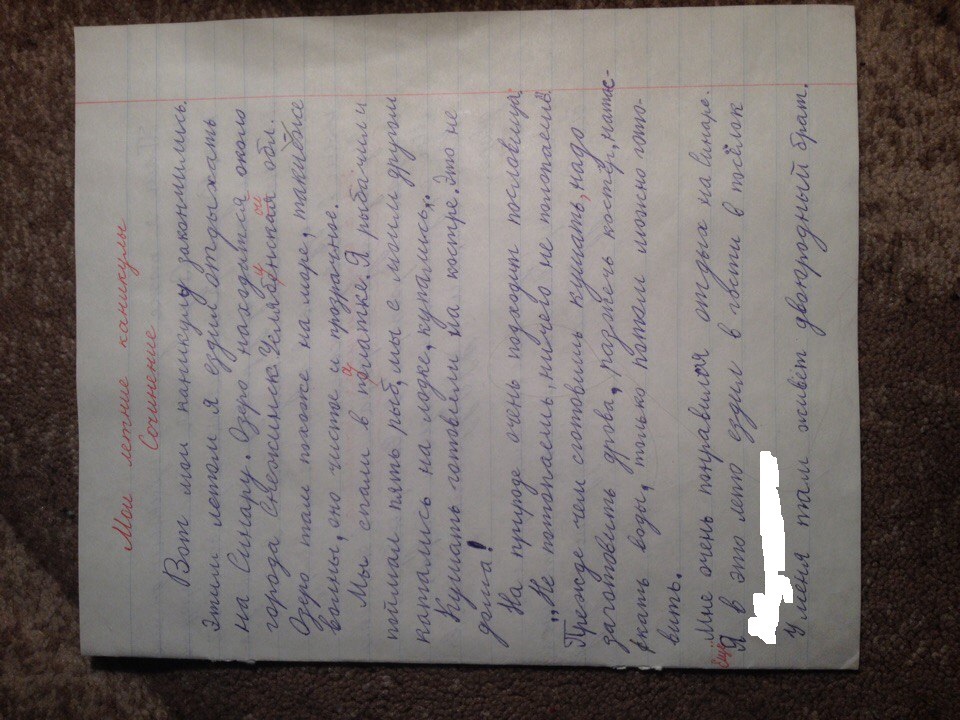 Мои летние каникулы
Сочинение
Вот мои каникулы закончились.
Этим летом я ездил отдыхать
на Синару. Озеро находится около
города Снежинск Челябенская обл.
Озеро там такое на море, такие же
волны, оно чистое и прозрачное.
Мы спали в палатке. Я рыбачил и
поймал пять рыб, мы с моим другом
катались на лодке, купались,.
Кушать готовили на костре. Это не
дома!
На природе очень подходит пословица:
"Не потопаешь, ничего не полопаешь".
Прежде чем сготовить кушать, надо
заготовить дрова, разжечь костёр, натас-
кать воды, только потом можно гото-
вить.
Мне очень понравился отдых на Синаре.
ещё
Я в это лето ездил в гости в посёлок
У меня там живёт двоюродный брат.